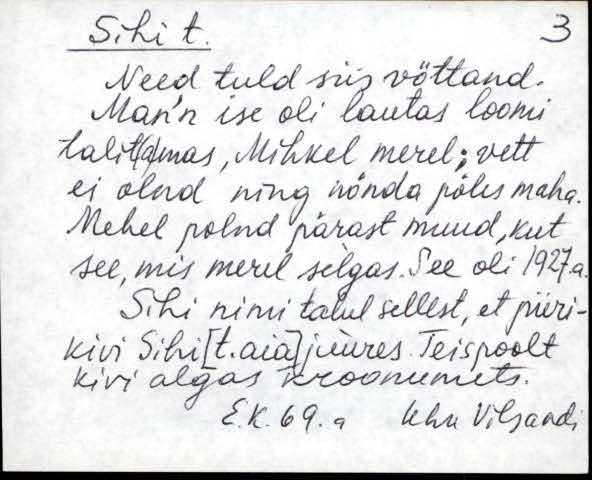 Sihi t. 3
Need tuld siis võttand.
Man'n ise oli lautas loomi
talit(a)mas, Mihkel merel; vett
ei olnd ning nõnda põles maha.
Mehel polnd pärast muud, kut
see, mis merel selgas. See oli 1927.a.
Sihi nimi talul sellest, et piiri-
kivi Sihi [t. aia] juures. Teispoolt
kivi algas kroonumets.
E.K. 69. a Vilsandi